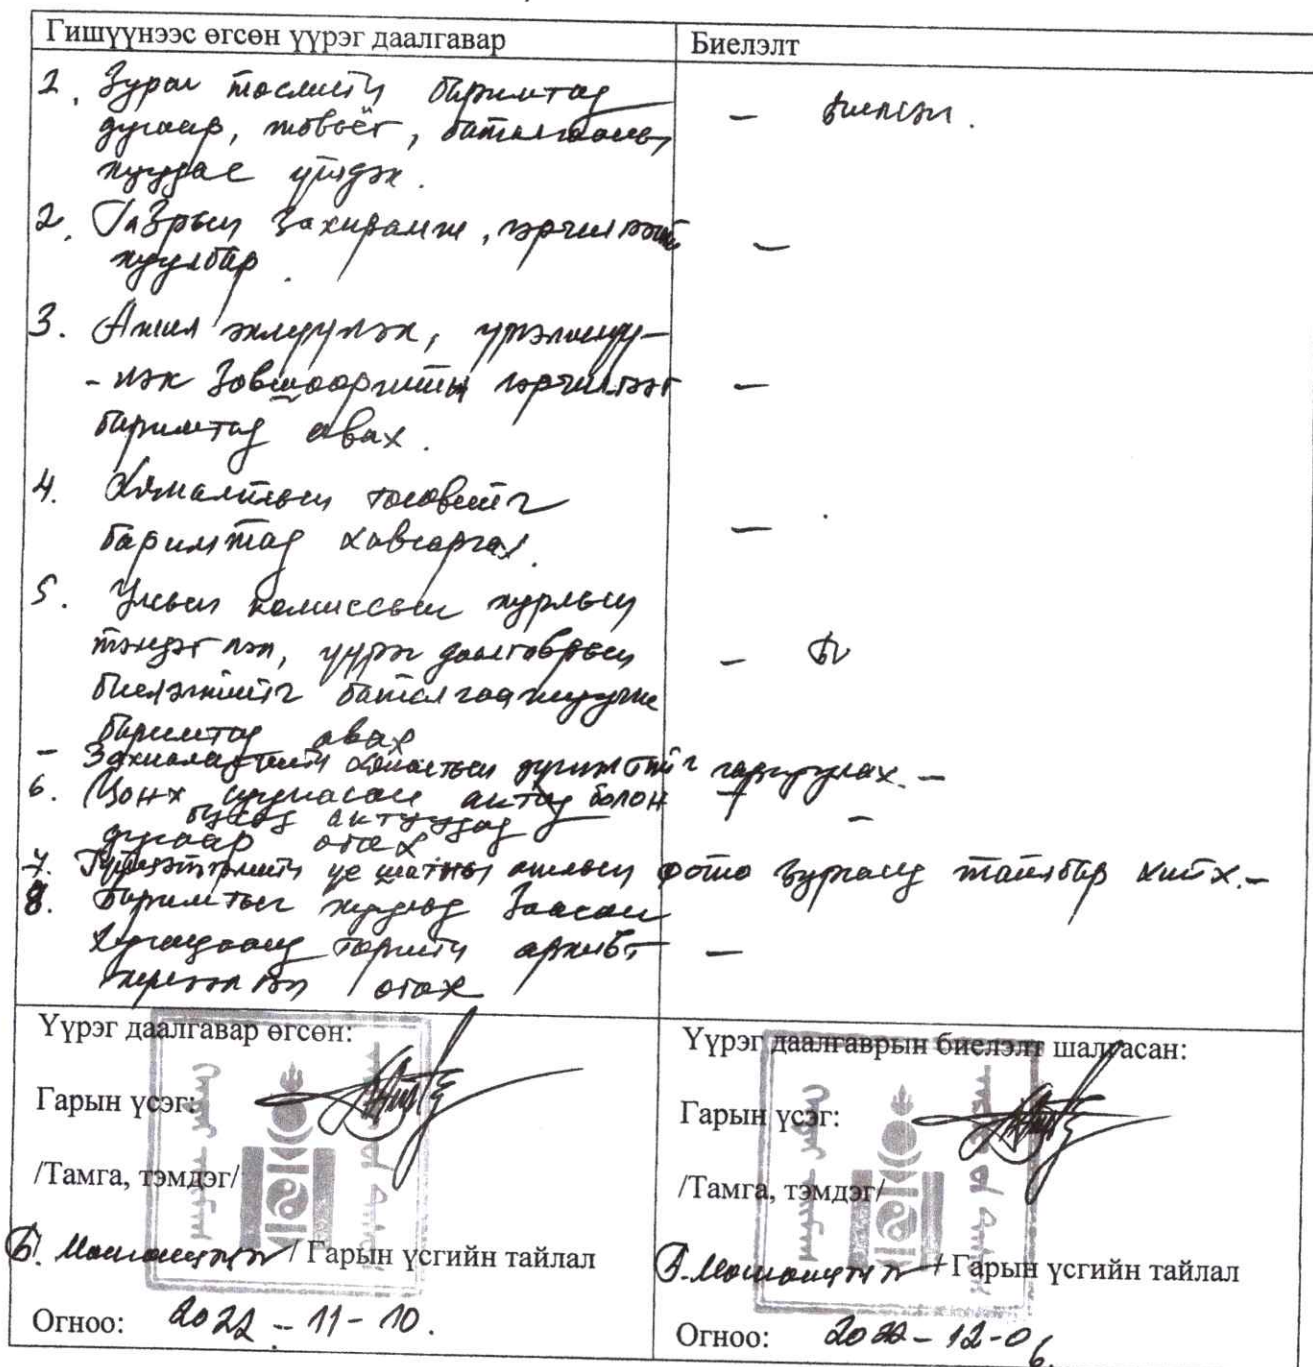 Гишүүнээс өгсөн үүрэг даалгавар
Биелэлт
1. Зураг төслийн баримтад
дугаар, товьёг, баталгааны
хуудас үйлдэх.
- Биелсэн.
2. Газрын захирамж, гэрчилгээний
хуулбар.
-
3. Ажил эхлүүлэх, үргэлжлүү-
- лэх зөвшөөрлийн гэрчилгээг
баримтад авах.
-
4. Хяналтын төсөвийг
баримтад хавсаргах.
-
5. Улсын комиссын хурлын
тэмдэглэл, үүрэг даалгаврын
биелэлтийг баталгаажуулж
баримтад авах
- Би
- Захиалагчийн хяналтын дүгнэлтийг гаргуулах. -
6. Цонх суулгасан актад болон
бусад актуудад
дугаар өгөх
-
7. Гүйцэтгэлийн үе шатны ажлын фото зурганд тайлбар хийх. -
8. Баримтыг хуульд заасан
хугацаанд төрийн архивт
хүлээлгэн өгөх
-
Үүрэг даалгавар өгсөн:
Гарын үсэг:
/Тамга, тэмдэг/
/ Гарын үсгийн тайлал
Огноо: 2022 - 11 - 10.
Үүрэг даалгаврын биелэлт шалгасан:
Гарын үсэг:
/Тамга, тэмдэг/
/ Гарын үсгийн тайлал
Огноо: 2022 - 12 - 06.